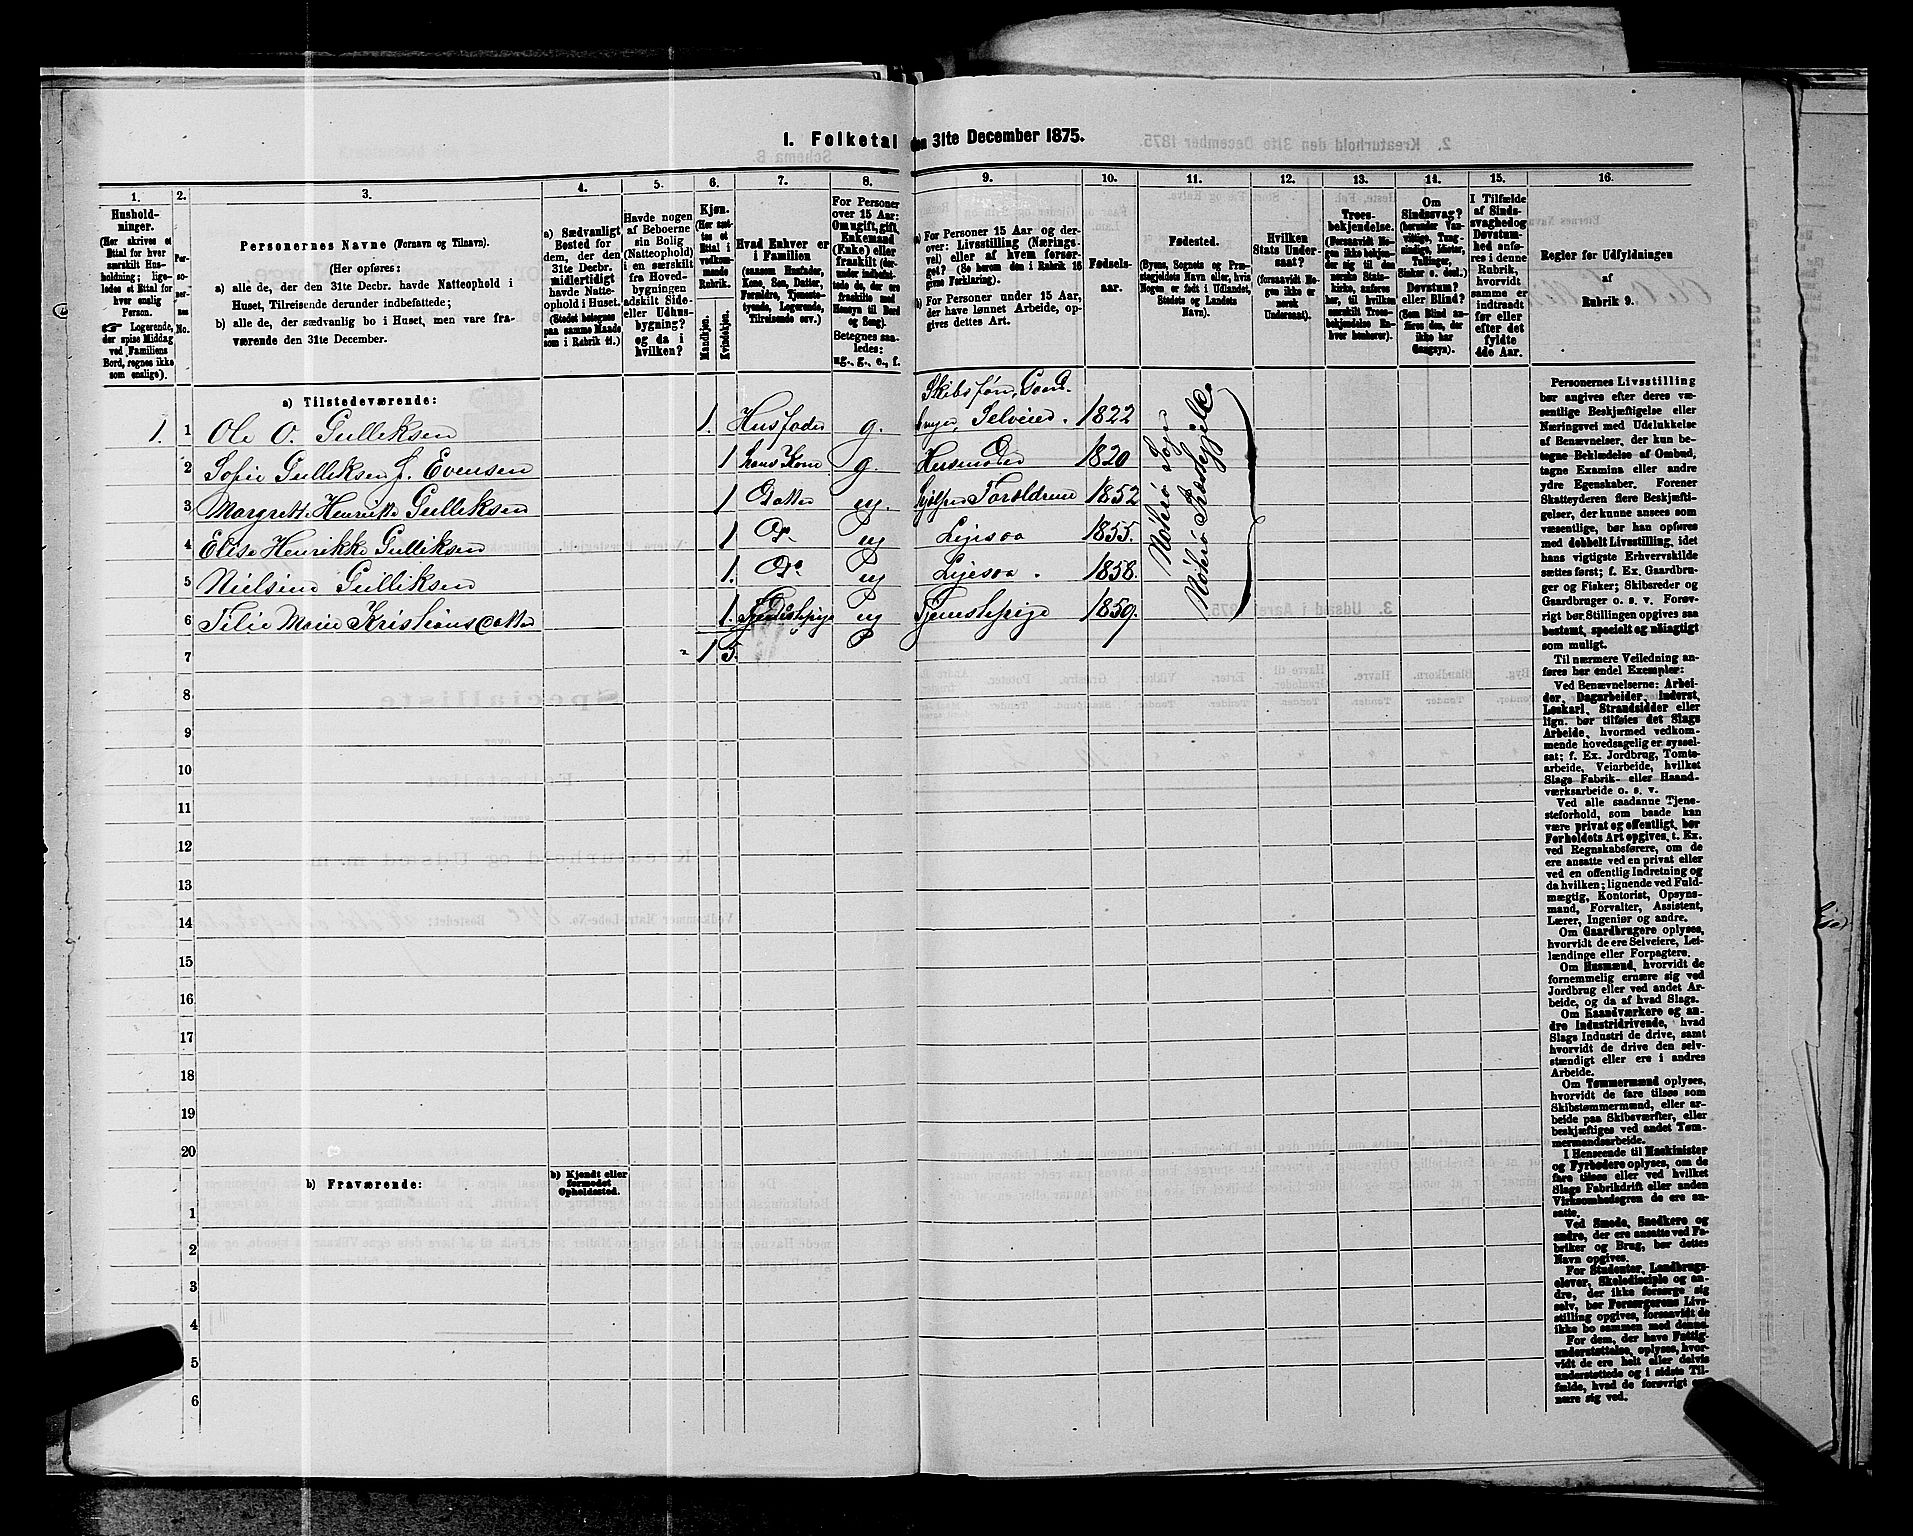 1. Folketal den 31te December 1875.
1. 2. 3. 4. 5. 6. 7. 8. 9. 10. 11. 12. 13. 14. 15. 16.
Hushold-
ninger.
(Her skrives et
Ettal for hver
særskilt Hus-
holdning; lige-
ledes et Ettal for
hver enslig
Person.
☞ Logerende,
der spise Middag
ved Familiens
Bord, regnes ikke
som enslige).
Per-
so-
ner-
nes
No.
Personernes Navne (Fornavn og Tilnavn).
(Her opføres:
a) alle de, der den 31te Decbr. havde Natteophold i
Huset, Tilreisende derunder indbefattede;
b) alle de, der sædvanlig bo i Huset, men vare fra-
værende den 31te December.
a) Sædvanligt
Bosted for
dem, der den
31te Decbr.
midlertidigt
havde Natte-
ophold i Huset.
(Stedet betegnes
paa samme Maade
som i Rubrik 11.)
Havde nogen
af Beboerne
sin Bolig
(Natteophold)
i en særskilt
fra Hoved-
bygningen
adskilt Side-
eller Udhus-
bygning?
og da i
hvilken?
Kjøn.
(Her sæt-
tes et
Ettal i
vedkom-
mende
Rubrik.
Mandkjøn.
Kvindekjøn.
Hvad Enhver er
i Familien
(saasom Husfader,
Kone, Søn, Datter,
Forældre, Tjeneste-
tyende, Logerende,
Tilreisende osv.)
For Personer
over 15 Aar:
Om ugift, gift,
Enkemand
(Enke) eller
fraskilt (der-
under indbefat-
tede de, der ere
fraskilte med
Hensyn til Bord
og Seng).
Betegnes saa-
ledes:
ug., g., e., f.
a) For Personer 15 Aar og der-
over: Livsstilling (Nærings-
vei) eller af hvem forsør-
get? (Se herom den i Rubrik 16
givne Forklaring).
b) For Personer under 15 Aar,
der have lønnet Arbeide, op-
gives dettes Art.
Fødsels-
aar.
Fødested.
(Byens, Sognets og Præ-
stegjeldets Navn eller, hvis
Nogen er født i Udlandet,
Stedets og Landets
Navn).
Hvilken
Stats Under-
saat?
(forsaavidt No-
gen ikke er
norsk
Undersaat).
Troes-
bekjendelse.
(Forsaavidt No-
gen ikke beken-
der sig til den
norske Stats-
kirke, anføres
her, til hvilken
særskilt Troes-
bekjendelse En-
hver henhører).
Om
Sindssvag?
(herunder Van-
vittige, Tung-
sindige, Idioter,
Tullinger,
Sinker o. desl.)
Døvstum?
eller Blind?
(Som Blind an-
føres den, der
ikke har
Gangsyn).
I Tilfælde
af Sinds-
svaghed og
Døvstum-
hed anfø-
res i denne
Rubrik,
hvorvidt
samme er
indtraadt
før eller
efter det
fyldte
4de Aar.
Regler for Udfyldningen
af
Rubrik 9.
a) Tilstedeværende:
1. 1 Ole O. Gulliksen 1. Husfader g. Skibsfør, Gaardbruger Selveier. 1822
2 Sofie Gulliksen f. Evensen 1 hans Kone g. Husmoder 1820
3 Margrette Henrikke Gulliksen 1 Datter ug. hjelper Foreldrene 1852
4 Elise Henrikke Gulliksen 1 Do ug Ligesaa 1855.
5 Nielsine Gulliksen 1. Do ug Ligesaa. 1858.
6 Tilie Marie Kristiansdatter 1. Tjenestepige ug Tjenestepige 1859.
Nøterø Sogn
Nøterø Præstegjeld
7 1 5.
8
9
10
11
12
13
14
15
16
17
18
19
20
b) Fraværende:
b) Kjendt eller
formodet
Opholdssted.
1
2
3
4
5
6
Personernes Livsstilling
bør angives efter deres væ-
sentlige Beskjæftigelse eller
Næringsvei med Udelukkelse
af Benævnelser, der kun be-
tegne Beklædelse af Ombud,
tagne Examina eller andre
ydre Egenskaber. Forener
Skatteyderen flere Beskjæfti-
gelser, der kunne ansees som
væsentlige, bør han opføres
med dobbelt Livsstilling, idet
hans vigtigste Erhvervskilde
sættes først; f. Ex. Gaardbru-
ger og Fisker; Skibsreder og
Gaardbruger o. s. v. Forøv-
rigt bør Stillingen opgives saa
bestemt, specielt og nøiagtigt
som muligt.
Til nærmere Veiledning an-
føres her endel Exempler:
Ved Benævnelserne: Arbei-
der, Dagarbeider, Inderst,
Løskarl, Strandsidder eller
lign. bør tilføies det Slags
Arbeide, hvormed vedkom-
mende hovedsagelig er syssel-
sat; f. Ex. Jordbrug, Tomte-
arbeide, Veiarbeide, hvilket
Slags Fabrik- eller Haand-
værksarbeide o. s. v.
Ved alle saadanne Tjene-
steforhold, som baade kan
være privat og offentligt, bør
Forholdets Art opgives, t. Ex.
ved Regnskabsførere, om de
ere ansatte ved en privat eller
ved en offentlig Indretning og
da hvilken; lignende ved Fuld-
mægtig, Kontorist, Opsyns-
mand, Forvalter, Assistent,
Lærer, Ingeniør og andre.
Om Gaardbrugere oplyses,
hvorvidt de ere Selveiere, Lei-
lændinge eller Forpagtere.
Om Husmænd, hvorvidt de
fornemmelig ernære sig ved
Jordbrug eller ved andet Ar-
beide, og da af hvad Slags.
Om Haandværkere og an-
dre Industridrivende, hvad
Slags Industri de drive, samt
hvorvidt de drive den selv-
stændigt eller ere i andres
Arbeide.
Om Tømmermænd oplyses,
hvorvidt de fare tilsøs som
Skibstømmermænd, eller ar-
beide paa Skibsværfter, eller
beskjæftiges ved andet Tøm-
mermandsarbeide.
I Henseende til Maskinister
og Fyrbødere oplyses, om de
fare tilsøs eller ved hvilket
Slags Fabrikdrift eller anden
Virksomhedsgren de ere an-
satte.
Ved Smede, Snedkere og
andre, der ere ansatte ved Fa-
briker og Brug, bør dettes
Navn opgives.
For Studenter, Landbrugs-
elever, Skoledisciple og an-
dre, der ikke forsørge sig
selv, bør Forsørgerens Livs-
stilling opgives, forsaavidt de
ikke bo sammen med denne.
For dem, der have Fattig-
understøttelse, oplyses, hvor-
vidt de ere helt eller delvis
understøttede og i sidste Til-
fælde, hvad de forøvrigt er-
nære sig ved.